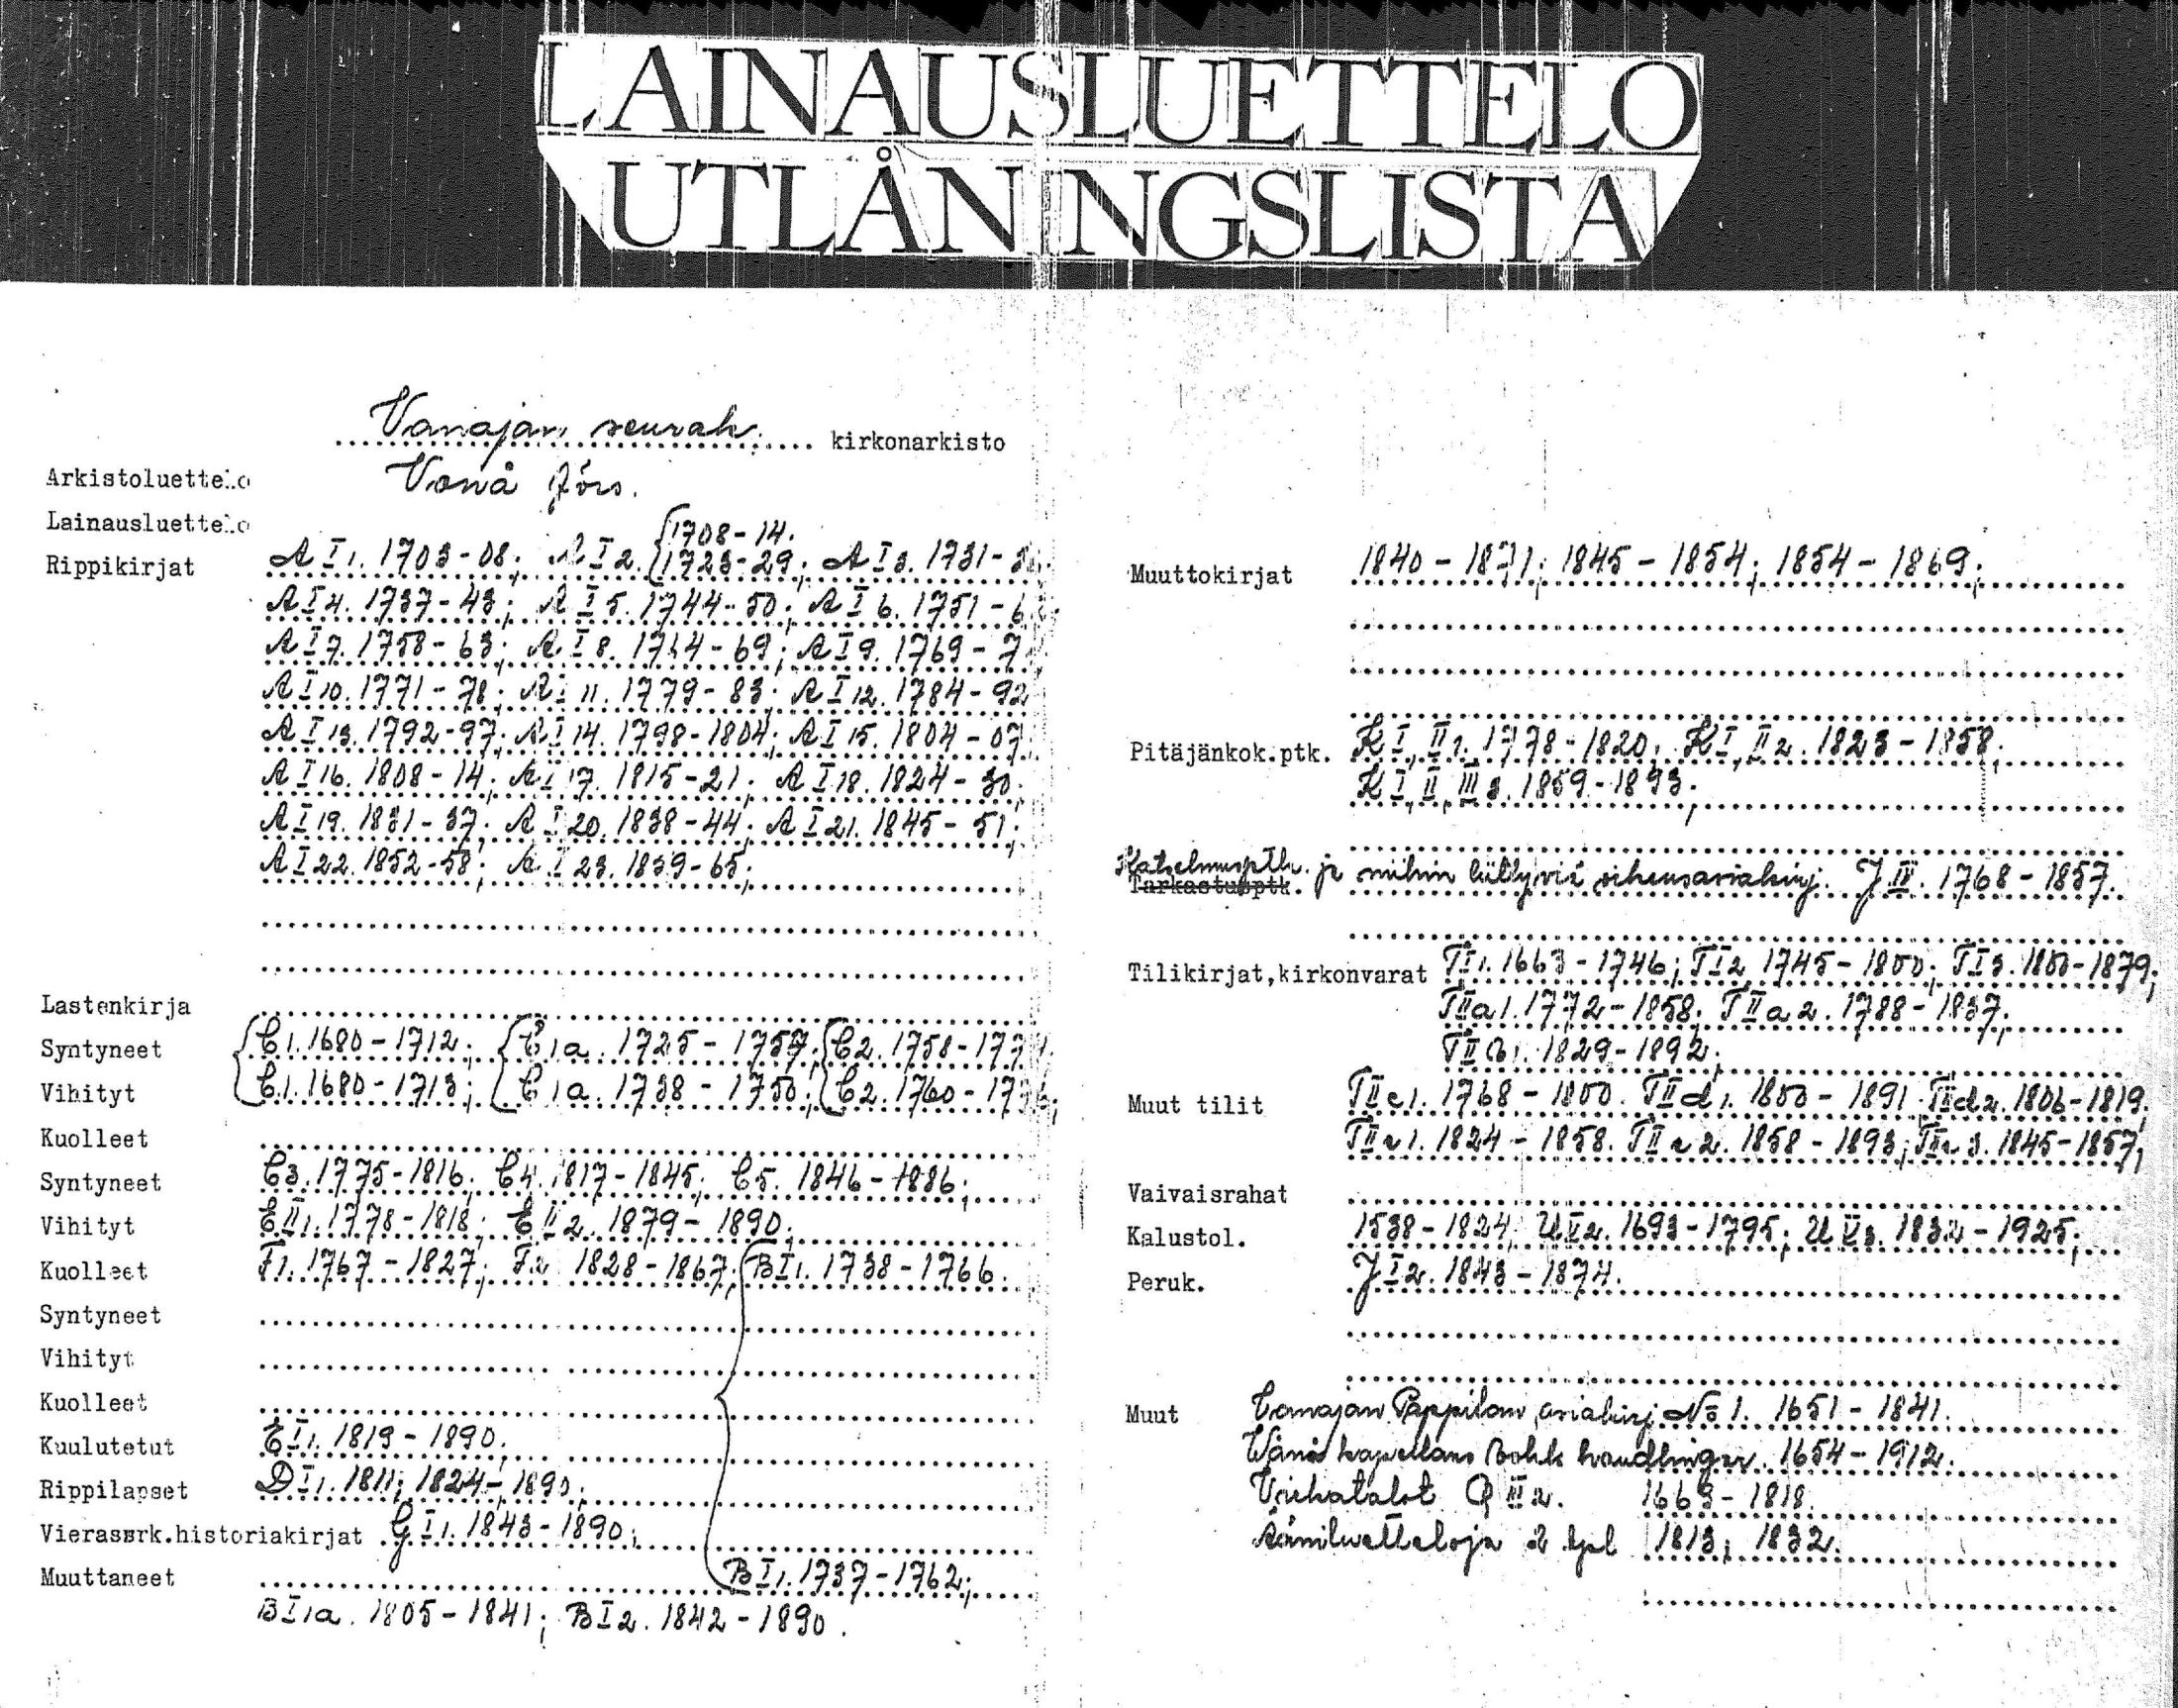 LAINAUSLUETTELO
UTLÅNINGSLISTA
Vanajan seurak. kirkonarkisto
Arkistoluettelo Vanå förs.
Lainausluettelo
Rippikirjat A I 1. 1703-08; A I 2. {1708-14. 1723-29; A I 3. 1731-
A I 4. 1737-43; A I 5. 1744-50; A I 6. 1751-
A I 7. 1758-63; A I 8. 1764-69; A I 9. 1769-
A I 10. 1771-78; A I 11. 1779-83; A I 12. 1784-92
A I 13. 1792-97; A I 14. 1798-1804; A I 15. 1804-07
A I 16. 1808-14; A I 17. 1815-21; A I 18. 1824-30;
A I 19. 1831-37; A I 20. 1838-44; A I 21. 1845-51;
A I 22. 1852-58; A I 23. 1859-65;
Lastenkirja
Syntyneet {C1. 1680-1712; {C1a. 1725-1757; {C2. 1758-177
Vihityt C1. 1680-1713; C1a. 1738-1750; C2. 1760-17
Kuolleet
Syntyneet C3. 1775-1816; C4. 1817-1845; C5. 1846-1886;
Vihityt E II 1. 1778-1818; E II 2. 1879-1890;
Kuolleet F1. 1767-1827; F2 1828-1867; {B I 1. 1738-1766.
Syntyneet
Vihityt
Kuolleet
Kuulutetut E I 1. 1819-1890;
Rippilapset D I 1. 1811; 1824-1890;
Vierassrk.historiakirjat G I 1. 1843-1890;
Muuttaneet B I 1. 1737-1762;
B I 1a. 1805-1841; B I 2. 1842-1890.
Muuttokirjat 1840-1871; 1845-1854; 1854-1869;
Pitäjänkok.ptk. K I, II 1. 1778-1820; K I, II 2. 1823-1858;
K I, II, III 3. 1859-1893;
Katselmusptk. ja niihin liittyviä oikeusasiakirj. J IV. 1768-1857.
Tarkastusptk.
Tilikirjat,kirkonvarat T I 1. 1663-1746; T I 2 1745-1800; T I 3. 1800-1879;
T II a 1. 1772-1858; T II a 2. 1788-1837;
T II b 1. 1829-1892;
Muut tilit T II c 1. 1768-1800. T II d 1. 1800-1891; T II d 2. 1806-1819.
T II e 1. 1824-1858. T II e 2. 1858-1893; T II e 3. 1845-1857;
Vaivaisrahat
Kalustol. 1538-1824; U V 2. 1693-1795; U V 3. 1832-1925;
Peruk. J I 2. 1843-1874.
Muut Vanajan Pappilan asiakirj. No 1. 1651-1841.
Wånå kapellans bohls handlingar. 1654-1912.
Virkatalot Q III 2. 1669-1818.
Ääniluetteloja 2 kpl 1813; 1832.